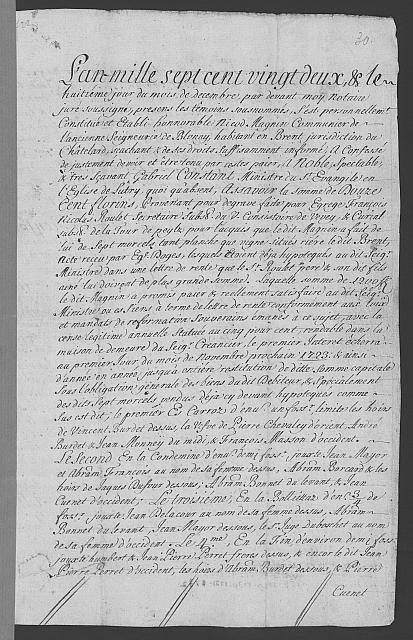 30.
L'an mille sept cent vingt deux, & le
huitième jour du mois de decembre, par devant moy Notaire
juré soussigné, presens les tèmoins sousnommés, s'est personnellemt
Constitué et Etabli honnorable Nicod Magnin Communier de
l'ancienne Seigneurie de Blonay, habitant en Brent, jurisdiction du
Châtelard, sachant & de ses droits suffisamment informé, a Confessé
de justement devoir et être tenu par cestes payer, à Noble, Spectable,
& tres Sçavant, Gabriel Constant Ministre du St. Evangile en
l'Eglise de Lutry, quoi qu'absent, Asavoir la somme de Douze
Cent florins, Provenant pour de faite pour Egrege François
Nicolas Roulet Secretaire Subst. du V. Consistoire de Vevey, & Curial
subst. de la Tour de peylz pour l'acquis que le dit Magnin a fait de
lui de Sept morcels tant planche que vigne situés rière le dit Brent,
Acte reçeu par Eg. Doges, lesquels étoient déja hypotequés au dit Seigr.
Ministre dans une lettre de rente que le Sr. Roulet frere & son dit fils
ainé lui doivent de plus grande somme. Laquelle somme de 1200 ff
le dit Magnin a promis payer & reellement satisfaire au dit Seigr.
Ministre ou es siens à terme de lettre de rente conformément aux Loix
et mandats de reformation Souverains émanés à ce sujet, avec la
cense legitime annuelle Statuée au cinq pour cent, rendable dans la
maison de demeure du Seigr. Creancier, le premier Interet écherra
au premier jour du mois de Novembre prochain 1723. & ainsi
d'année en année, jusqu'à entière restitution de ditte somme capitale
Sous l'obligation générale des biens du dit Debiteur, & Spécialement
des dits Sept morcels vendus déja cy devant hypotequés comme
Sus est dit; le premier En Carroz d'env. un foss.r limite les hoirs
de Vincent Burdet dessus, la Vefve de Pierre Chevaley d'orient, André
Burdet & Jean Monney du midi, & François Masson d'occident.
Le Second En la Condemine d'env. demi foss.r, jouxte Jean Mayor
et Abram François au nom de sa femme dessus, Abram Borcard & les
hoirs de Jaques Dufour dessous; Abram Bonnet du levant, & Jean
Cuenet d'occident; Le troisième, En la d'env. 3/4 de
foss.r jouxte Jean Delacour au nom de sa femme dessus, Abram
Bonnet du levant, Jean Mayor dessous, le Sr. Juge Dubochet au nom
de sa femme d'occident. Le 4me, En la d'environ demi foss.r
jouxte humbert & Jean Pierre Perret freres dessus, & encor le dit Jean
Pierre Perret d'occident, les hoirs d'Abram Burdet dessous, & Pierre
Cuenet